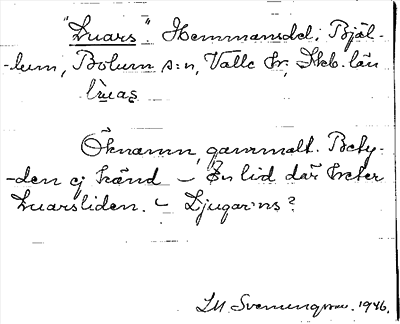 "Luars". Hemmansdel, Bjäl-
-lum, Bolum s:n, Valle hr, Skb. län
lu̇̀a̧s̨
Öknamn, gammalt. Bety-
-den ej känd – En lid där heter
Luarsliden. – Ljugar'ns?
LM. Svenungsson. 1946.